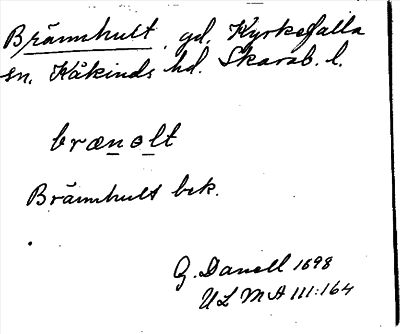 Brämhult, gd. Kyrkefalla
sn. Kåkinds hd. Skarab. l.
brænolt
Brämhult bek.
G. Danell 1898
ULMA 111:164